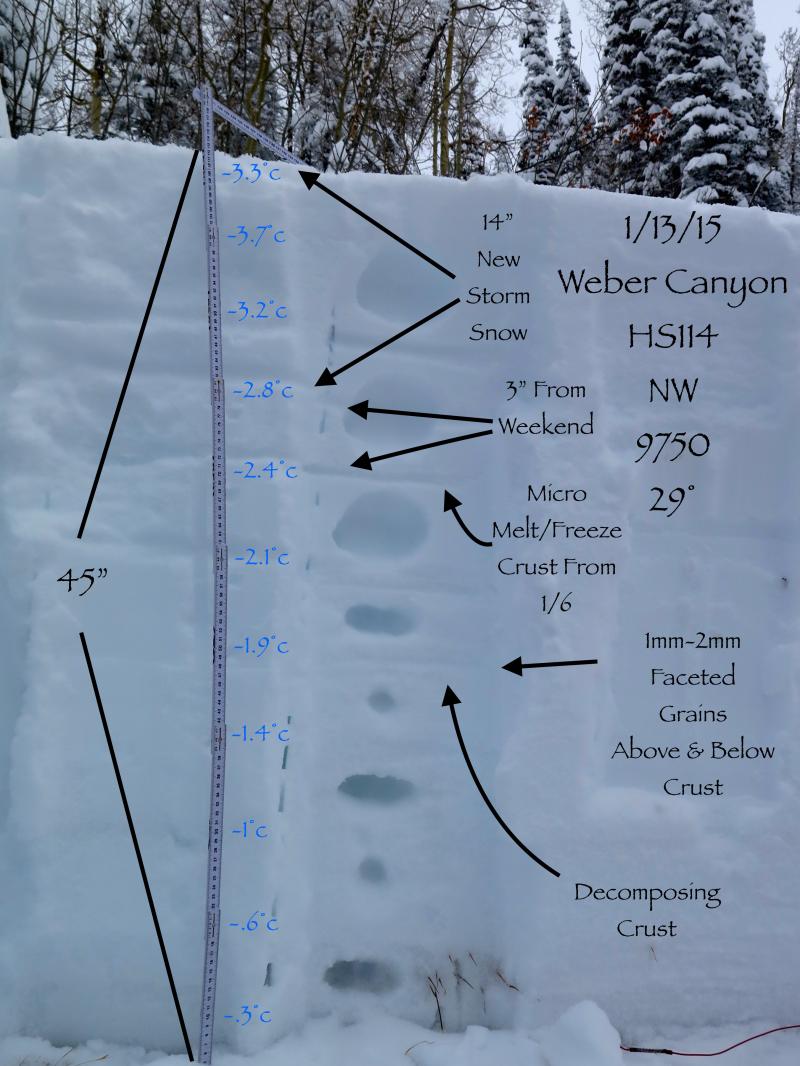 -3.3°c
-3.7°c
-3.2°c
-2.8°c
-2.4°c
-2.1°c
-1.9°c
-1.4°c
-1°c
-.6°c
-.3°c
45”
14”
New
Storm
Snow
3” From
Weekend
Micro
Melt/Freeze
Crust From
1/6
1/13/15
Weber Canyon
HS114
NW
9750
29°
1mm-2mm
Faceted
Grains
Above & Below
Crust
Decomposing
Crust